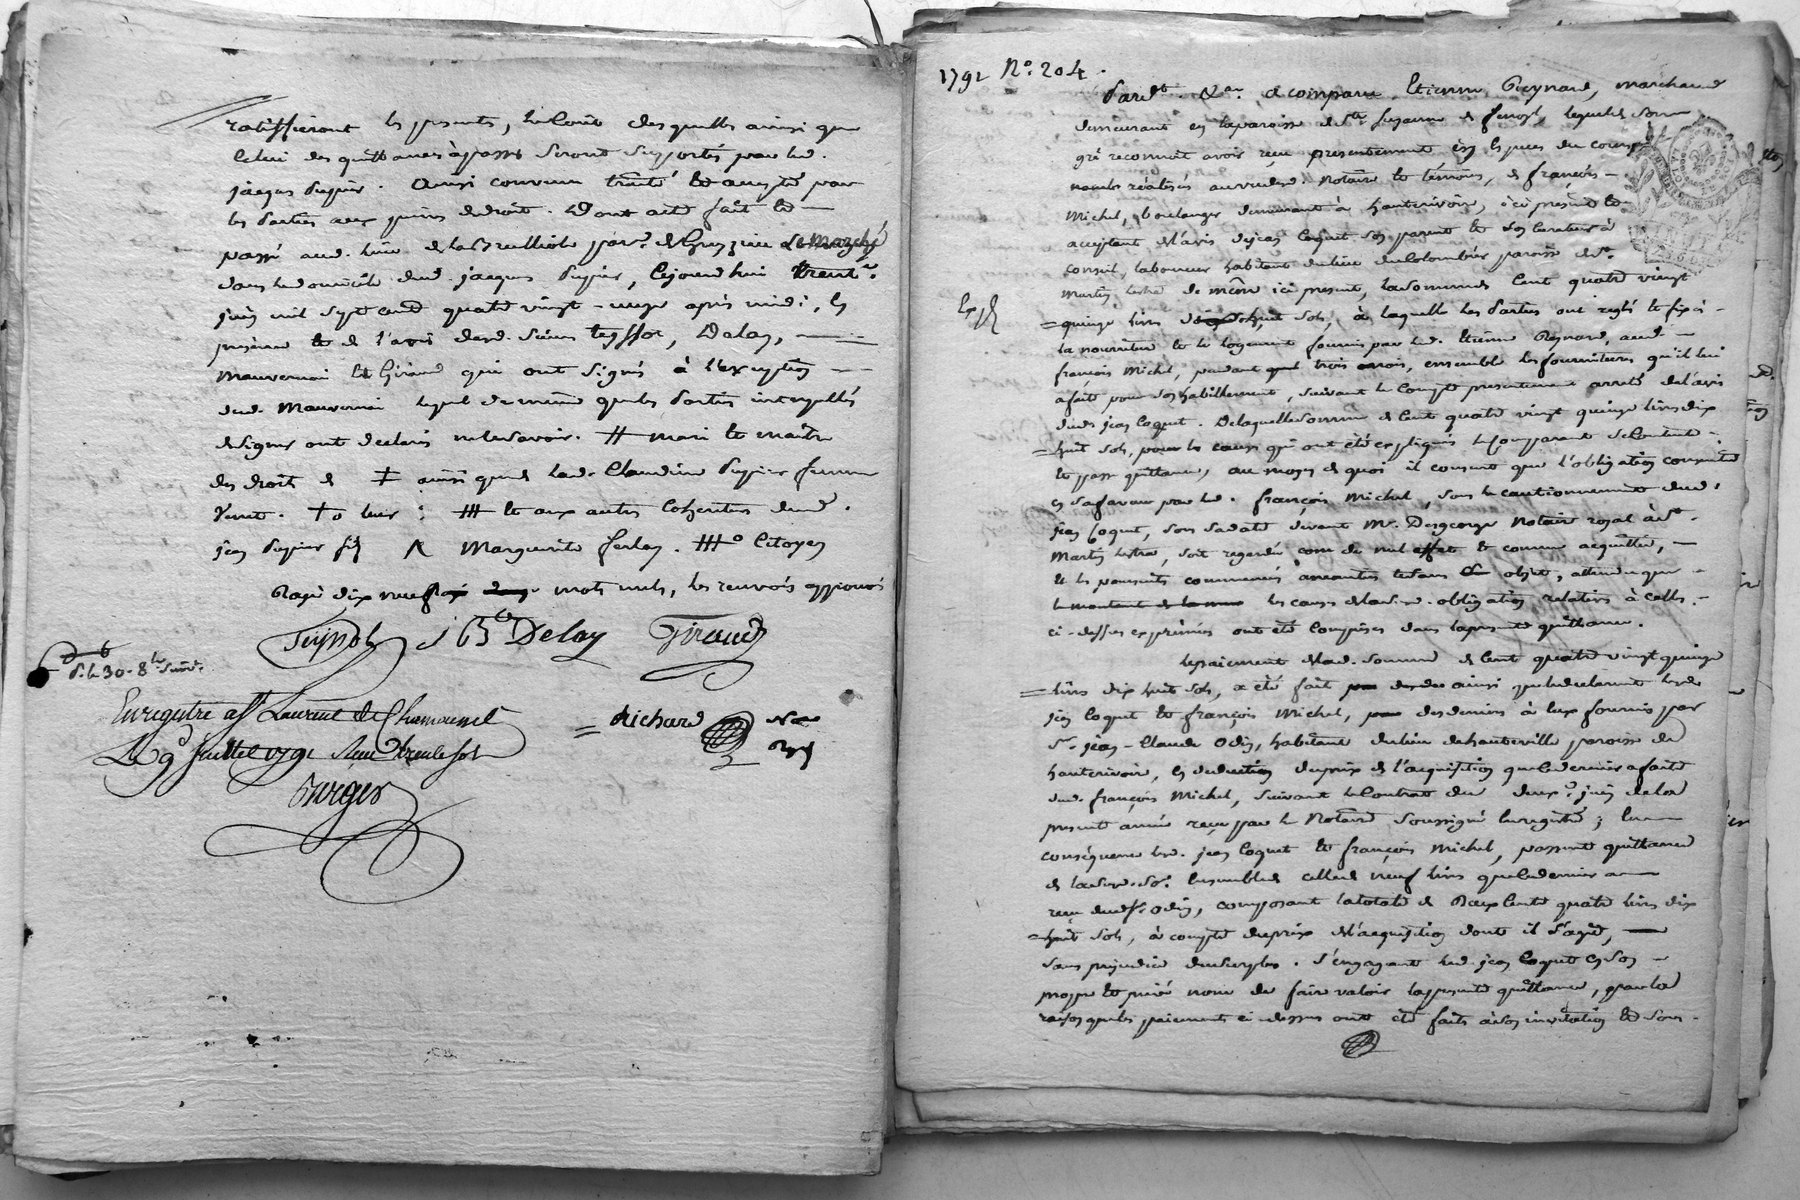 ratiffieront les presentes, le Cout desquelles ainsi que
Celui des quittances à passer seront supportés par led.
jacques dupuis. Ainsi convenu traité et accepté par
les parties aux peines de droit. Dont acte fait et
passé aud. lieu de la par.se de Grezieu Le marché
dans le domicile dud. jacques dupuis, Cejourdhui trente
juin mil sept cent quatre vingt-onze après midi, en
presence et de l'avis desd. sieurs teyssot, Delay,
mauvernai et Giraud qui ont signés à l'exception
dud. Mauvernai lequel de même que les parties interpellés
de signer ont declaré ne le savoir. # mari et maitre
des droits de ‡ ainsi que lad. Claudine dupuis femme
Venet. † o leur ; et aux autres Cohéritiers dud.
jean dupuis fils Marguerite ferlay. Citoyen
Rayé dix neuf mots nuls, les renvois approuvés
Teissot J B.te Delay Giraud
d. le 30. 8.bre suiv.t
Enregistré a St Laurent de Chamousset
Le 9 juillet 1791 Reçu
Richard N.re
Roy.
Burger
1791 N.o 204.
Pard.t &a. a comparu Etienne Reynard, marchand
demeurant en la paroisse de Ste. Suzanne de , lequel de son
gré reconnoit avoir reçu presentement en Especes du cours
nombrés réalisés au vu desd. Notaire et témoins, de françois
Michel, boulanger demeurant à hauterivoire, ici present et
acceptant de l'avis de jean Coquet son parent et
conseil, laboureur habitant du lieu du Colombier paroisse de St.
Martin lestra de même ici present, la somme de Cent quatre vingt
Exp.é
quinze livres dix huit sols, à laquelle les parties ont reglé et fixé
la nourriture et le logement fournis par led. Etienne Reynard, aud.
françois Michel, pendant trois mois, ensemble les fournitures qu'il lui
a fait pour son habillement, suivant le Compte presentement arrêté de l'avis
dud. jean Coquet. De laquelle somme de Cent quatre vingt quinze livres dix
huit sols, pour les causes qui ont été expliqués le Comparant se Contente
et passe quittance, au moyen de quoi il consent que l'obligation consentie
en sa faveur par led. françois Michel, sous le cautionnement dud.
jean Coquet, sous sa date devant Mr. Desgeorge Notaire royal à St.
Martin lestra, soit regardée come de nul effet et comme acquittée,
et les poursuites commencés aneanties et sans objet, attendu que
les causes de lad. obligation relatives à celles
ci-dessus exprimées ont été Comprises dans la presente quittance.
Le paiement de lad. somme de Cent quatre vingt quinze
livres dix huit sols, a été fait ainsi que le declarent lesd.
jean Coquet et françois Michel, des deniers à eux fournis par
Sr. jean-Claude Odin, habitant du lieu de hauteville paroisse de
hauterivoire, en deduction du prix de l'acquisition que ce dernier a faite
dud. françois Michel, suivant le Contrat du deux juin de la
presente année reçu par le Notaire soussigné Enregistré ; En
conséquence lesd. jean Coquet et françois Michel, passent quittance
de lad. so.e Ensemble de celle de neuf livres que ce dernier a
reçu dud. Sr. odin, composant la totalité de Deux Cent quatre livres dix
huit sols, à compte du prix de l'acquisition dont il s'agit,
sans prejudice du surplus. s'engageant led. jean Coquet en son
propre et privé nom de faire valoir la presente quittance, par la
raison que les paiements ci-dessus ont été faits à son invitation et sous